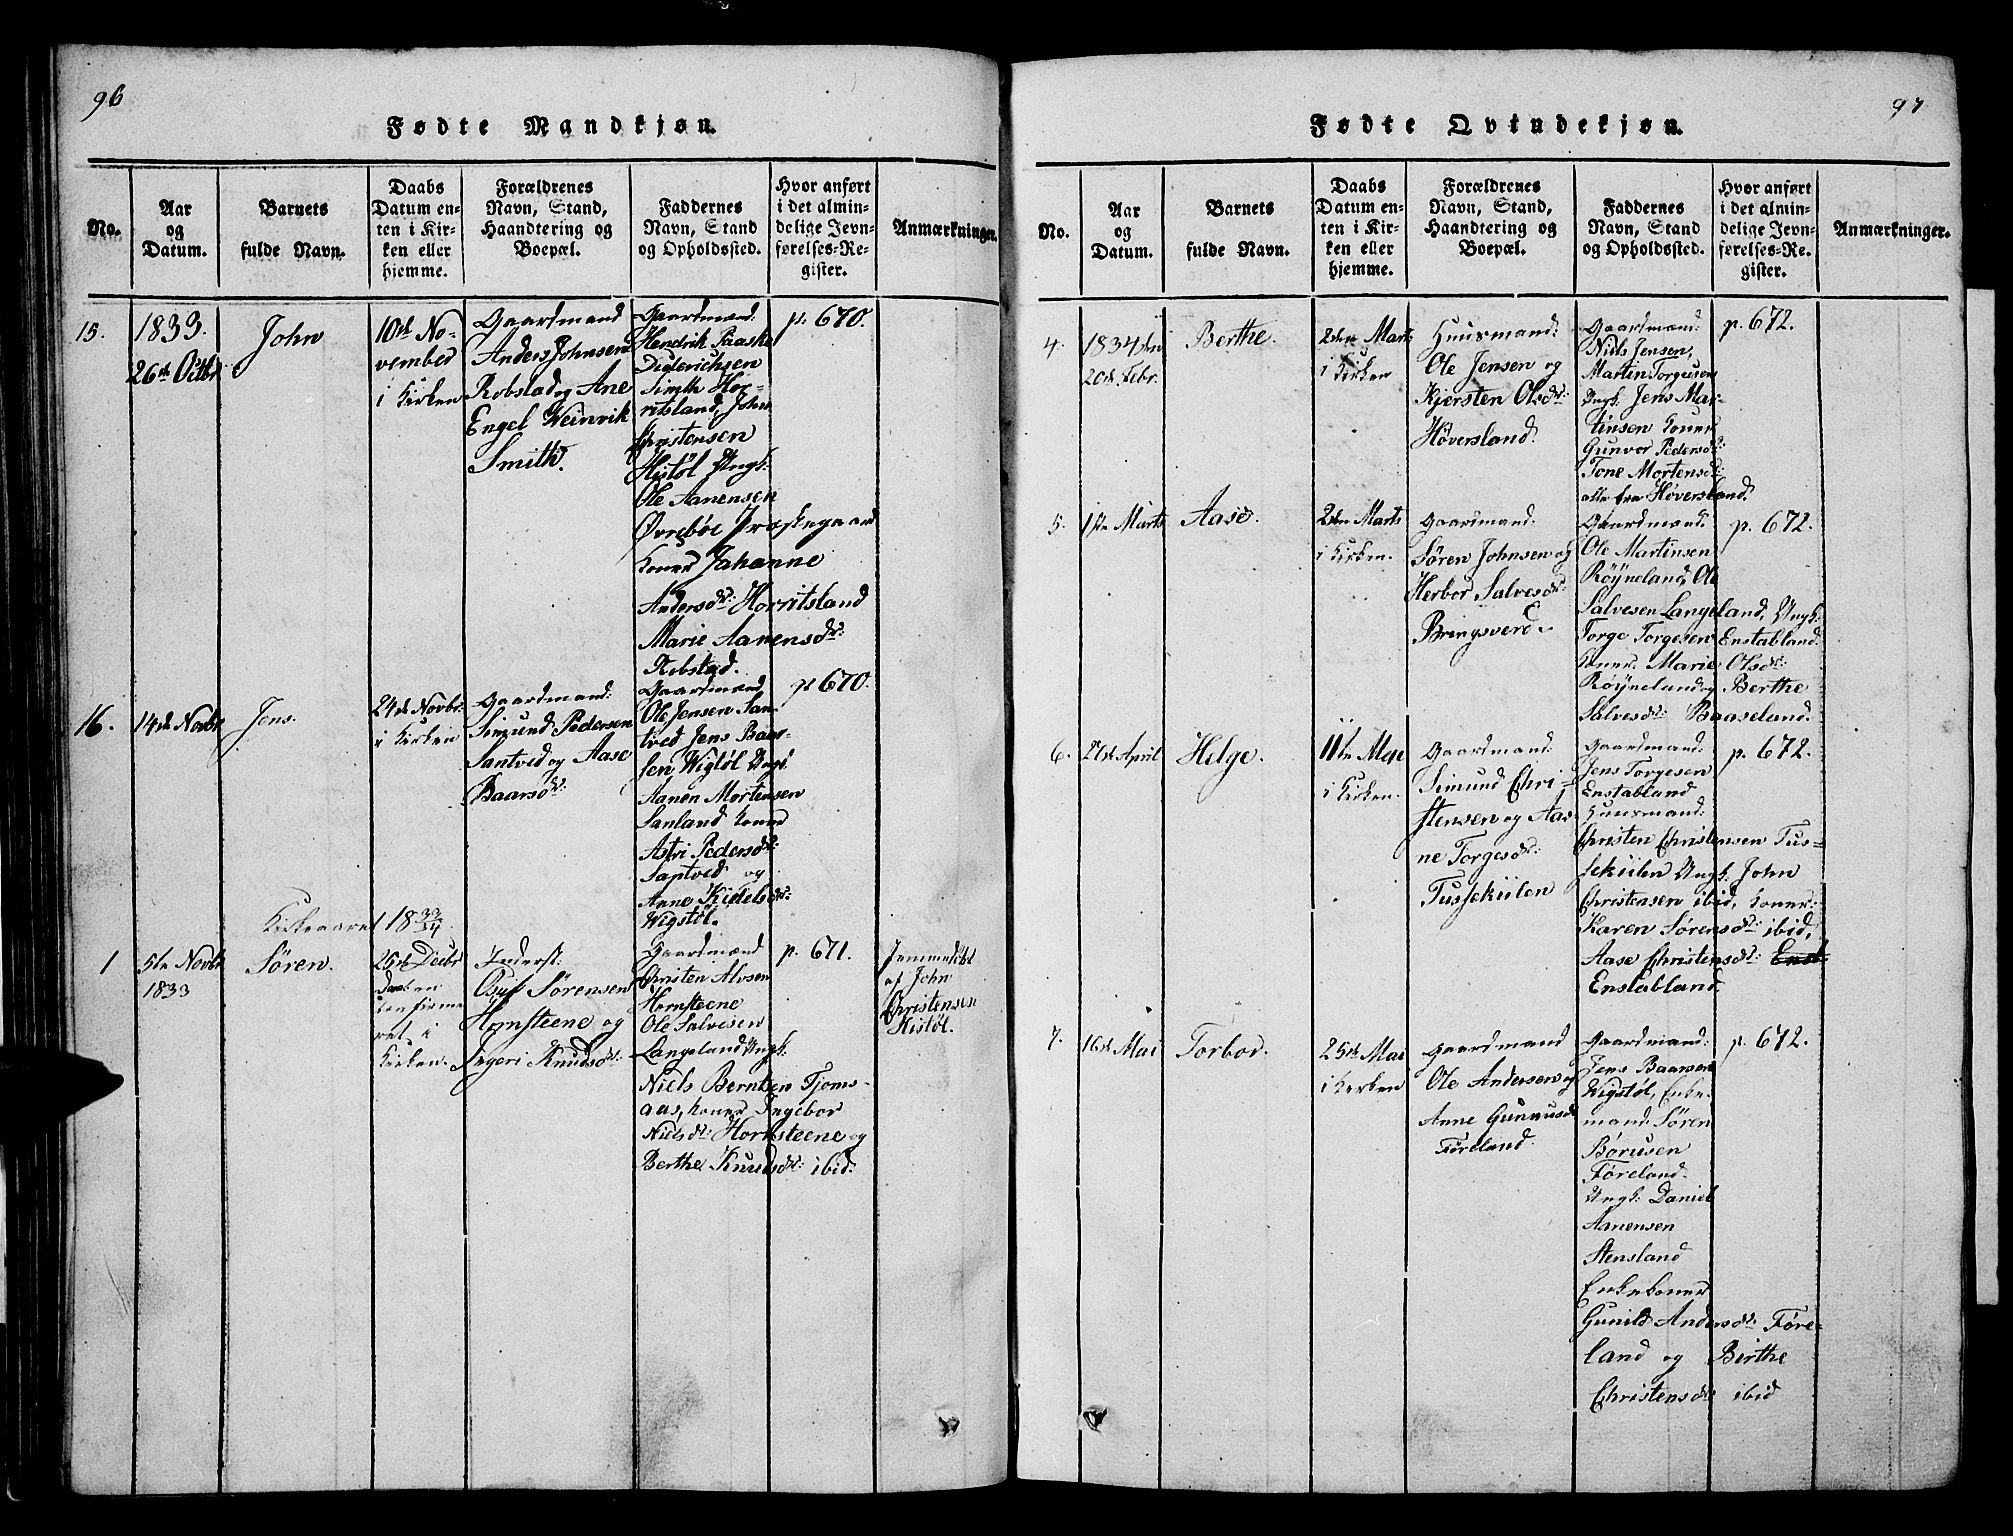 96
Fødte Mandkjøn.
No.
Aar
og
Datum.
Barnets
fulde Navn.
Daabs
Datum en-
ten i Kir-
ken eller
hjemme.
Forældrenes
Navn, Stand,
Haandtering og
Boepæl.
Faddernes
Navn, Stand
og Opholdssted.
Hvor anført
i det almin-
delige Jevn-
førelses-Re-
gister.
Anmærkninger.
15.
1833.
26de Octbr
John
10de No-
vember
i Kirken
Gaardmand
Anders Johnsen
Robstad og Ane
Engel Weinvik
Smith.
Gaardmænd:
Hendrik Paaske
Diderichsen
Smith Hor-
ritsland, John
Christensen
Histøl Ungk:
Ole Aanensen
Øvrebøe Præstegaard
Koner Johanne
Andersdr: Horritsland
Marie Aanensdr:
Robstad.
p. 670.
16.
14de Novbr
Jens.
24de Novbr:
i Kirken
Gaardmand:
Simund Pedersen
Santved og Aase
Baarsdr:
Gaardmænd
Ole Jensen San-
tved Jens Baar-
sen Wigstøl Ungk:
Aanen Mortensen
Sanland Koner
Astri Pedersdr:
Santved og
Anne Kidelsdr:
Wigstøl.
p. 670.
Kirkeaaret 1833/34
1
5te Novbr
1833
Søren.
25de Decbr
Daaben
confirme
ret i
Kirken.
Inderst:
Osuf Sørensen
Hornsteene og
Ingeri Knudsdr:
Gaardmænd
Christen Alvsen
Hornsteene
Ole Salvesen
Langeland Ungk:
Niels Berntsen Tjoms-
aas, Koner Ingebor
Nielsdr: Hornsteene og
Berthe Knudsdr: ibid.
p. 671.
Jnnmeldt
af John
Christensen
Histøl.
97
Fødte Qvindekjøn.
No.
Aar
og
Datum.
Barnets
fulde Navn.
Daabs
Datum en-
ten i Kir-
ken eller
hjemme.
Forældrenes
Navn, Stand,
Haandtering og
Boepæl.
Faddernes
Navn, Stand
og Opholdssted.
Hvor anført
i det almin-
delige Jevn-
førelses-Re-
gister.
Anmærkninger.
4.
1834 den
20de Febr.
Berthe.
2den Marts
i Kirken
Huusmand:
Ole Jensen og
Kjersten Olsdr:
Høversland.
Gaardmænd:
Niels Jensen,
Martin Torgusen
Ungk. Jens Mar-
tinsen Koner
Gunvor Pedersdr:
Tone Mortensdr:
alle fra Høversland.
p. 672.
5.
1ste Marts
Aase.
2den Marts
i Kirken.
Gaardmand.
Søren Johnsen og
Herbor Salvesdr:
Bringsverd.
Gaardmænd.
Ole Martinsen
Røyneland, Ole
Salvesen Langeland, Ungk:
Torge Torgesen Enstabland.
Koner. Marie Olsdr:
Røyneland og Berthe
Salvesdr: Baaseland.
p. 672.
6.
27de April
Helge.
11te Mai
i Kirken.
Gaardmand:
Simund Chri-
stensen og Aas-
ne Torgesdr:
Tussekiilen
Gaardmand:
Jens Torgesen
Enstabland
Huusmand:
Christen Christensen Tus-
sekiilen Ungk. John
Christensen ibid, Koner:
Karen Sørensdr: ibid,
Aase Christensdr: Enst-
Enstabland.
p. 672.
7.
16de Mai
Torbor.
25de Mai
i Kirken
Gaardmand
Ole Andersen og
Anne Gunnusdr
Føreland.
Gaardmand:
Jens Baarsen
Wigstøl, Enke-
mand Søren
Børusen
Føreland.
Ungk: Daniel
Aanensen
Stensland
Enkekoner
Gunild Andersdr: Føre-
land og Birthe
Christensdr ibid
p. 672.